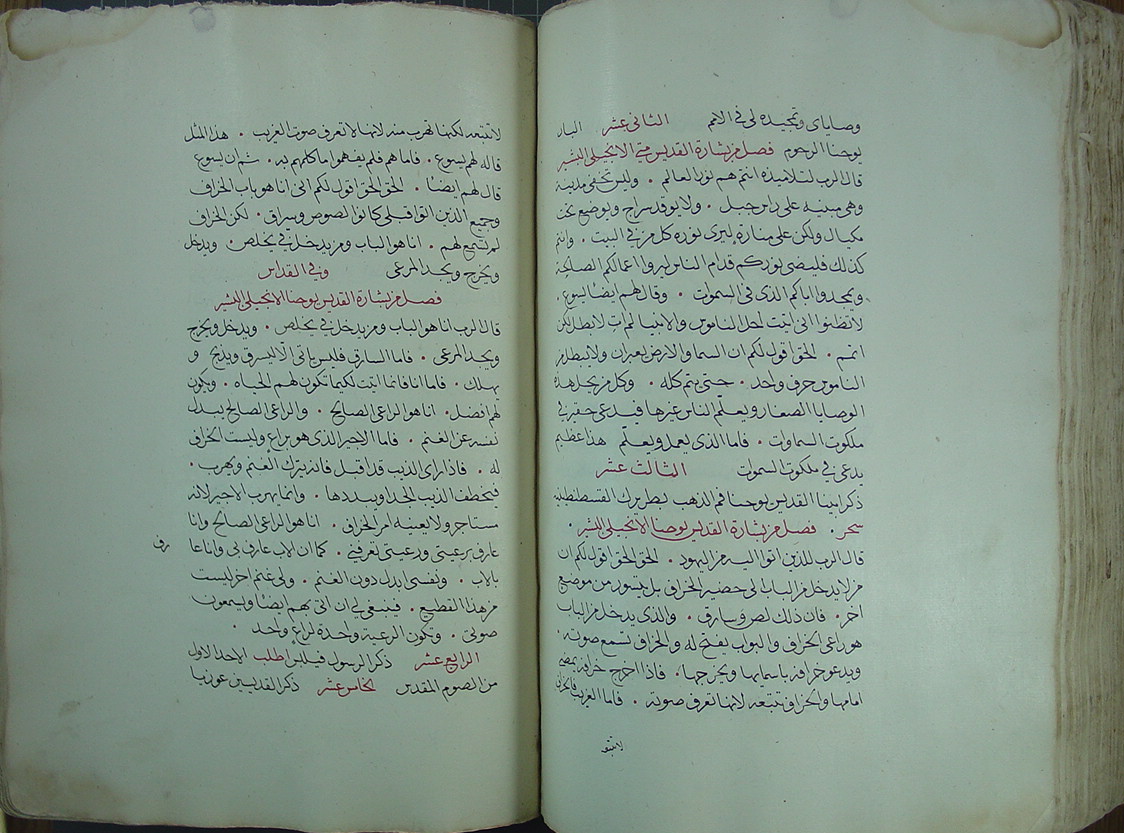 وصاياى وتمجيده لى فى الامم الثانى عشر البار
يوحنا الرحوم فصل من بشارة القديس متى الانجيلى البشير
قال الرب لتلاميذه انتم هم نور العالم . وليس تخفى مدينة
وهى مبنيه على راس جبل . ولا يوقد سراج ويوضع تحت
مكيال ولكن على منارة ليرى نوره كل من فى البيت . وانتم
كذلك فليضى نوركم قدام الناس ليروا اعمالكم الصالحة
ويمجدوا اباكم الذى فى السموات . وقال لهم ايضا يسوع .
لا تظنوا انى اتيت لحل الناموس والانبيا لم ات لابطل لكن
اتمم . الحق اقول لكم ان السما والارض يعبران ولا يبطل من
الناموس حرف واحد . حتى يتم كله . وكل من يحل هذه
الوصايا الصغار ويعلّم الناس غيرها فيدعى حقير فى
ملكوت السماوات . فاما الذى يعمل ويعلّم هذا عظيم
يدعى فى ملكوت السموات الثالث عشر
ذكر ابينا القديس يوحنا فم الذهب بطريرك القسطنطينية
سحر . فصل من بشارة القديس يوحنا الانجيلى البشير .
قال الرب للذين اتوا اليه من اليهود . الحق الحق اقول لكم ان
من لا يدخل من الباب الى حضير الخراف بل يتسور من موضع
اخر . فان ذلك لص وسارق . والذى يدخل من الباب
هو راعى الخراف والبواب يفتح له والخراف تسمع صوته .
ويدعو خرافه باسمايها ويخرجها . فاذا اخرج خرافه يمضى
امامها والخراف تتبعه لانها تعرف صوته . فاما الغريب فالخراف
لا تتبعه
لا تتبعه لكنها تهرب منه لانها لا تعرف صوت الغريب . هذا المثل
قاله لهم يسوع . فاما هم فلم يفهموا ما كلمهم به . ثم ان يسوع
قال لهم ايضا . الحق الحق اقول لكم انى انا هو باب الخراف
وجميع الذين اتوا قبلى كانوا لصوص وسراق . لكن الخراف
لم تسمع لهم . انا هو الباب ومن يدخل فى يخلص . ويدخل
ويخرج ويجد المرعى وفى القداس
فصل من بشارة القديس يوحنا الانجيلى البشير
قال الرب انا هو الباب ومن يدخل فى يخلص . ويدخل ويخرج
ويجد المرعى . فاما السارق فليس ياتى الّا ليسرق ويذبح و
يهلك . فاما انا فانما اتيت لكيما تكون لهم الحياه . ويكون
لهم افضل . انا هو الراعى الصالح . والراعى الصالح يبدل
نفسه عن الغنم . فاما الاجير الذى هو براعٍ وليست الخراف
له . فاذا راى الذيب قد اقبل فانه يترك الغنم ويهرب .
فيخطف الذيب الجدا ويبددها . وانما يهرب الاجير لانه
مستاجر ولا يعنيه امر الخراف . انا هو الراعى الصالح وانا
عارف برعيتى ورعيتى تعرفنى . كما ان الاب عارف بى وانا عا
رف
بالاب . ونفسى ابدل دون الغنم . ولى غنم اخر ليست
من هذا القطيع . فينبغى لى ان اتى بهم ايضا ويسمعون
صوتى . وتكون الرعية واحدة لراعٍ واحد .
الرابع عشر ذكر الرسول فيلبس اطلب الاحد الاول
من الصوم المقدس الخامس عشر ذكر القديسين عوزيا